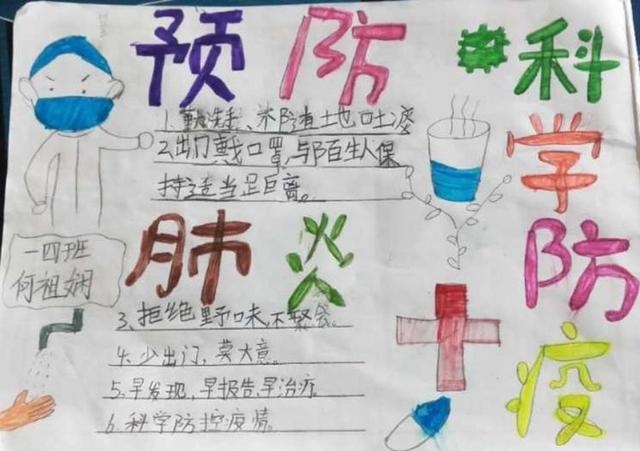 预防
科
学
防
疫
1.勤洗手、不随地吐痰
2.出门戴口罩,与陌生人保
持适当足距离。
一四班
何祖娴
肺炎
3、拒绝野味,不
4、少出门,莫大意。
5、早发现,早报告,早治疗
6、科学防控疫情。